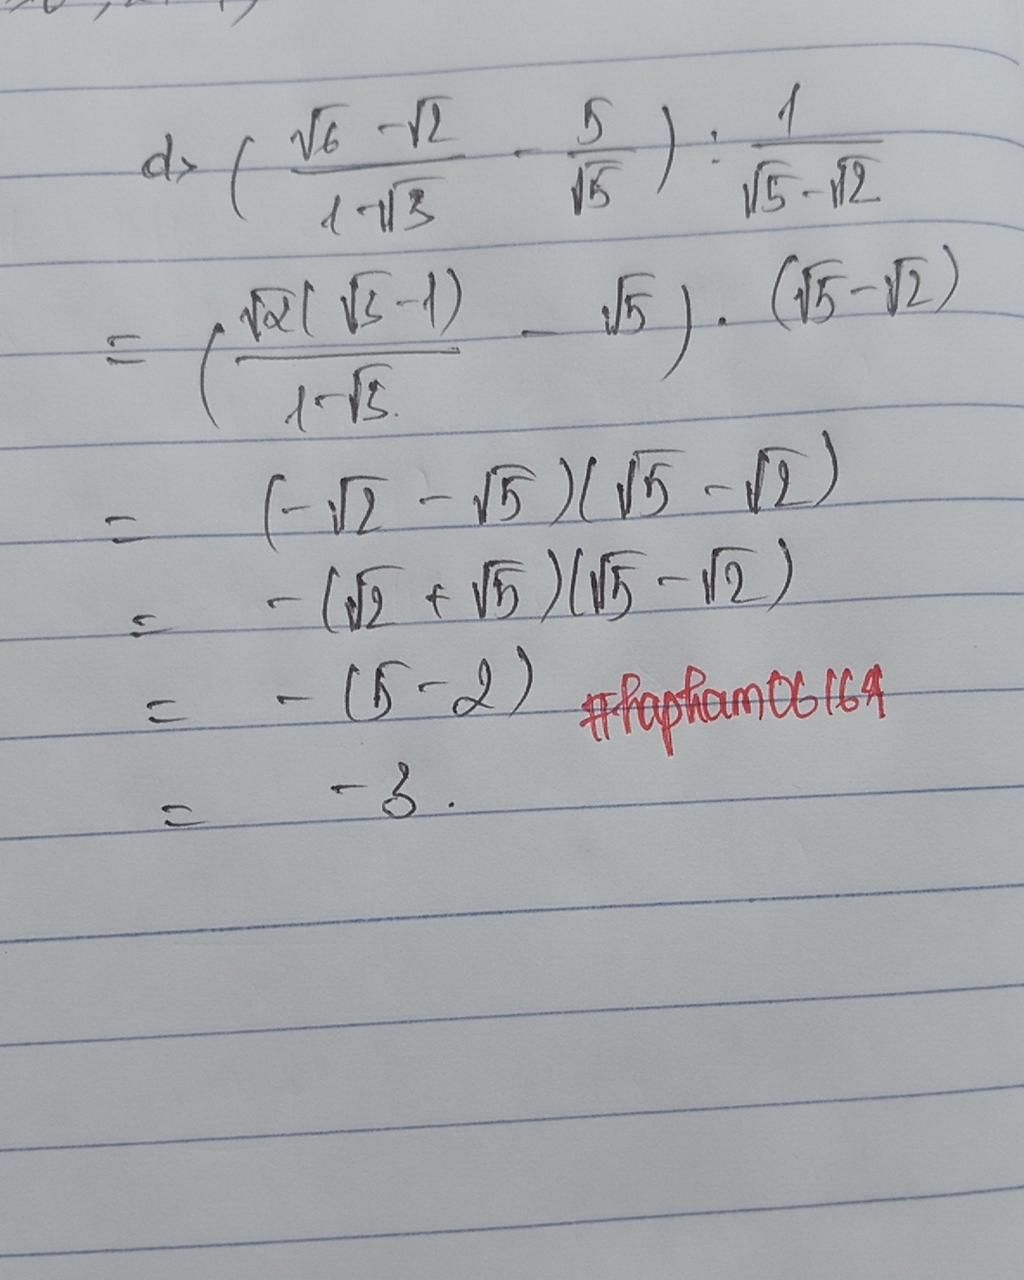 d> ( (√6 - √2)/(1-√3) - 5/√5 ) : 1/(√5-√2)
= ( √2(√3-1)/(1-√3) - √5 ) . (√5-√2)
= (-√2 - √5)(√5 - √2)
= -(√2 + √5)(√5 - √2)
= - (5-2) #hapham06164
= -3.